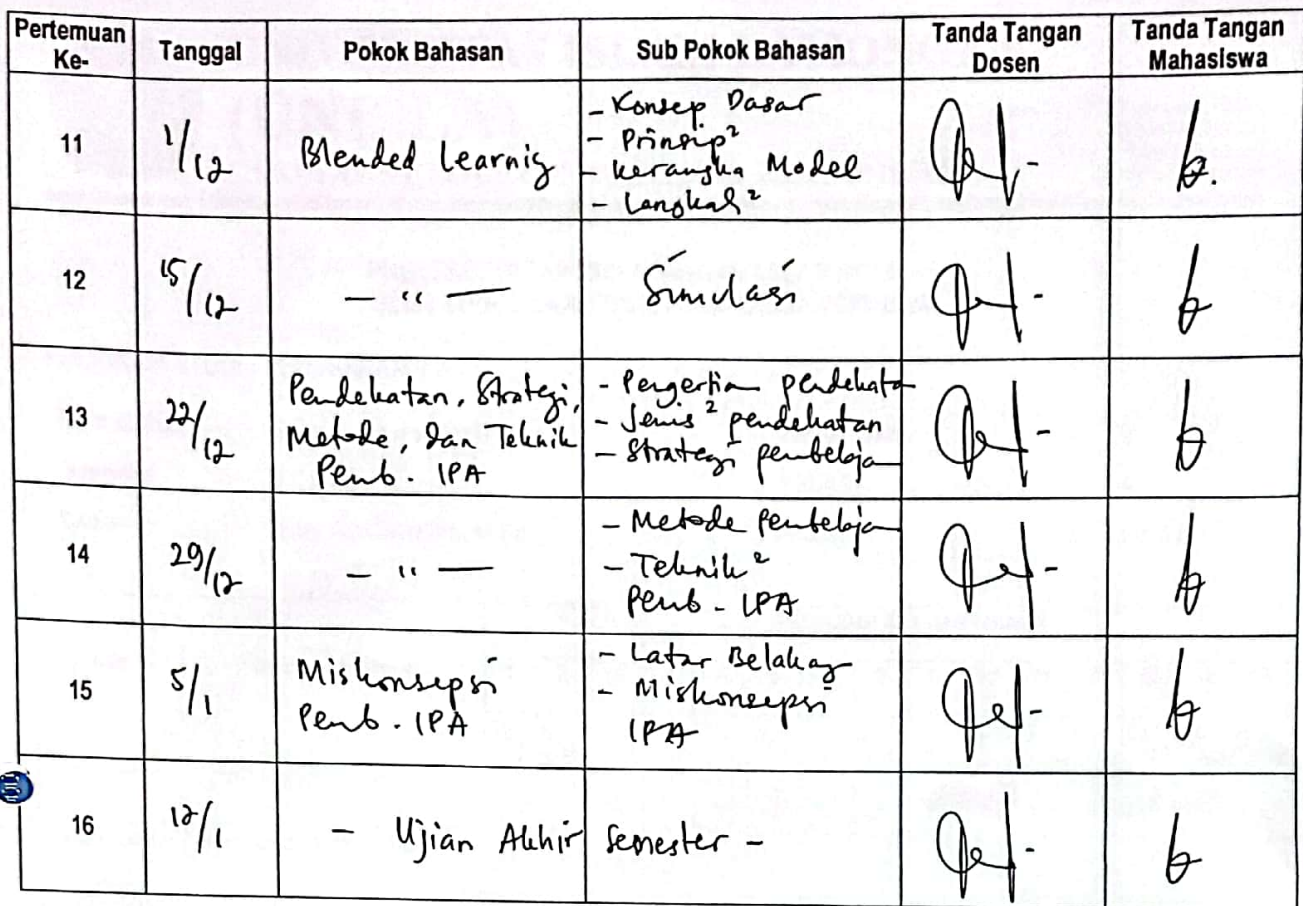 Pertemuan Ke-
Tanggal
Pokok Bahasan
Sub Pokok Bahasan
Tanda Tangan Dosen
Tanda Tangan Mahasiswa
11
1/12
Blended Learnig
- Konsep Dasar
- Prinsip²
- Kerangka Model
- Langkah²
12
15/12
- " -
Simulasi
13
22/12
Pendekatan, Strategi,
Metode, dan Teknik
Pemb. IPA
- Pengertian pendekata
- Jenis² pendekatan
- Strategi pembelaja
14
29/12
- " -
- Metode Pembelaja
- Teknik²
Pemb - IPA
15
5/1
Miskonsepsi
Pemb. IPA
- Latar Belakag
- Miskonsepsi
IPA
16
12/1
- Ujian Akhir Semester -